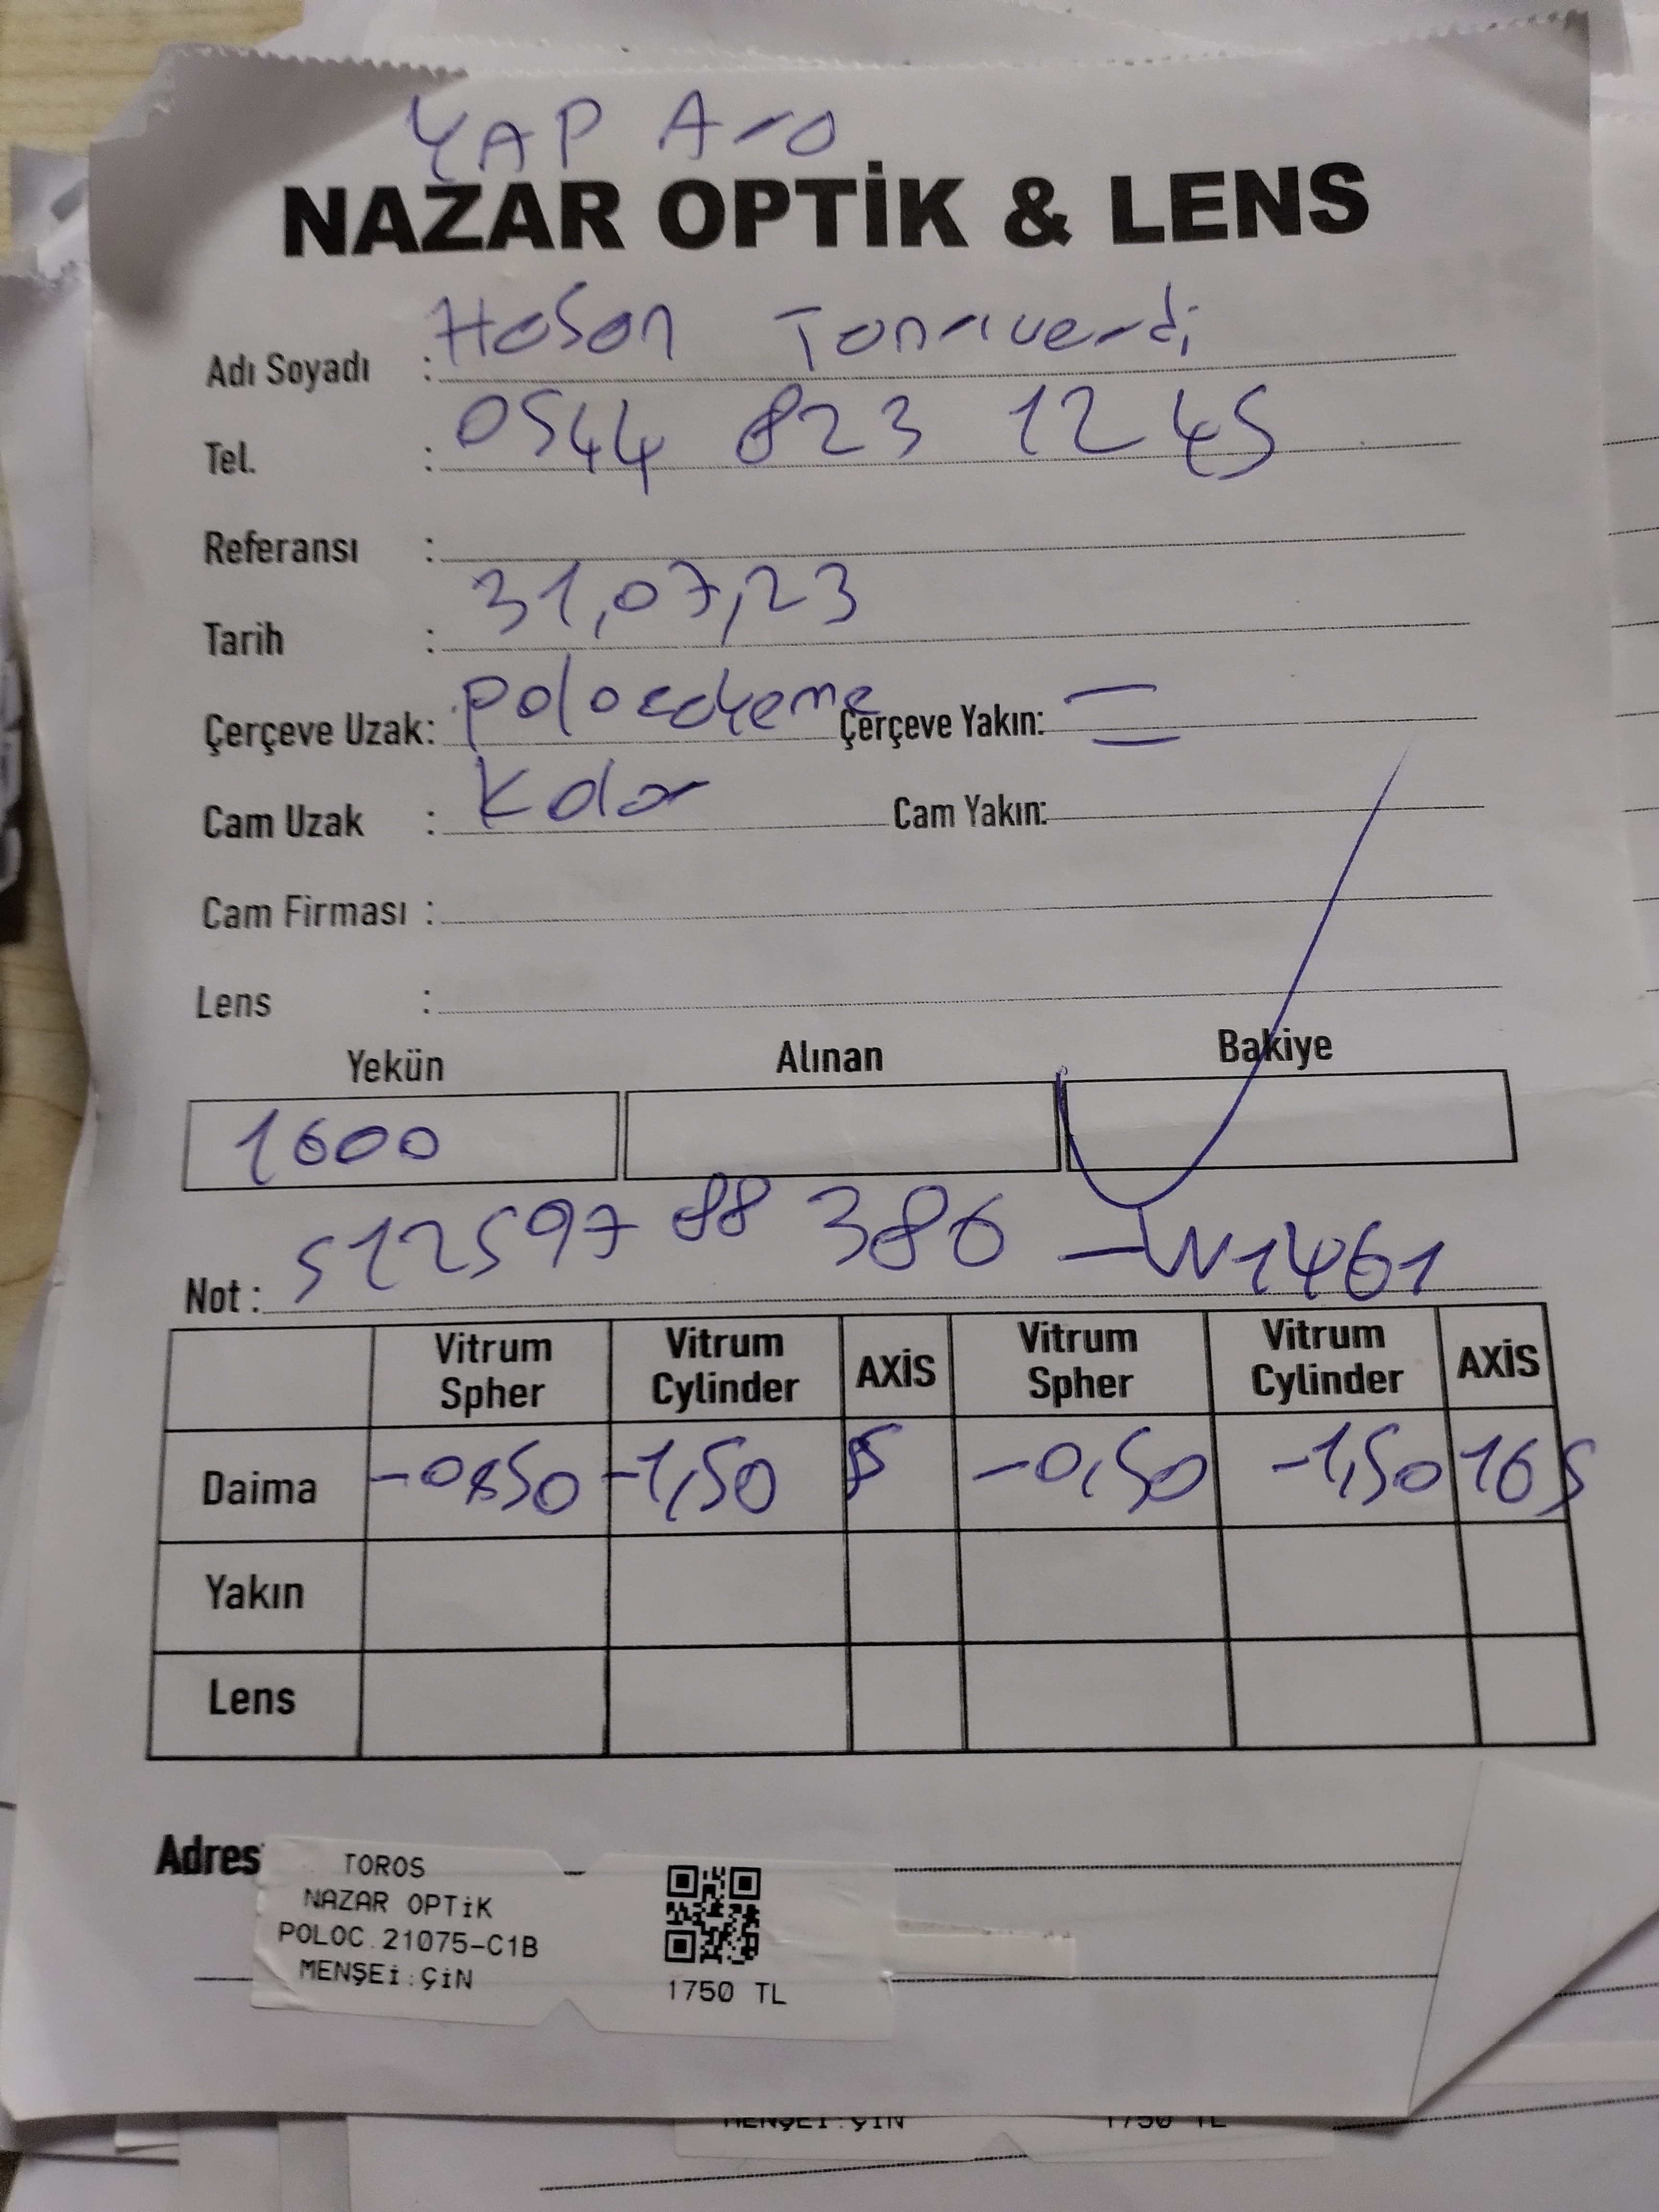 YAP Ara
NAZAR OPTİK & LENS
Adı Soyadı : Hasan Tanrıverdi
Tel. : 0544 823 12 45
Referansı :
Tarih : 31,07,23
Çerçeve Uzak: Çerçeve Yakın:
Cam Uzak : Kolor Cam Yakın:
Cam Firması :
Lens :
Yekün Alınan Bakiye
1600
Not : 512597 88 386 - W1461
Vitrum Spher Vitrum Cylinder AXİS Vitrum Spher Vitrum Cylinder AXİS
Daima -0,50 -1,50 5 -0,50 -1,50 165
Yakın
Lens
Adres
TOROS
NAZAR OPTİK
POLOC.21075-C1B
MENŞEİ:ÇİN
1750 TL
MENŞEİ:ÇİN 1750 TL